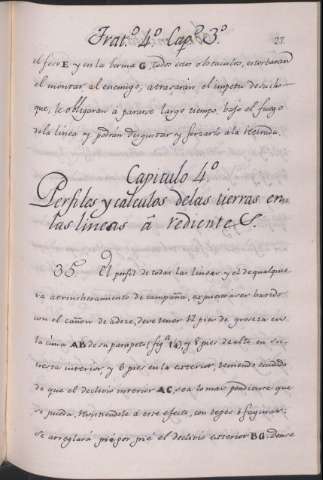 Trat.º 4.º Cap.º 3.º
27
el foso E y en la berma G, todos estos obstaculos, estorbaran
el montar al enemigo, atrasarán el impetu de su cho
que, le obligaran á pararse largo tiempo, bajo el fuego
de la linea y podrán disgustar y forzarle á la
Capitulo 4.º
Perfiles y calculos de las tierras en
las lineas á redientes.
35. El perfil de todas las lineas, y el de qualquie
ra atrincheramiento de campaña, expuesto á ser batido
con el cañon de á doze, deve tener 12 pies de grosesa en
la cima AB de su parapeto, fig.ª 14, y 8 pies de alto en su
interior y 6 pies en la exterior, teniendo cuidado
de que el declivio interior AC, sea lo mas pendiente que
se pueda, revistiendole á este efecto, con cespes ó faginas;
se arreglará pie por pie el declivio exterior BG, donde